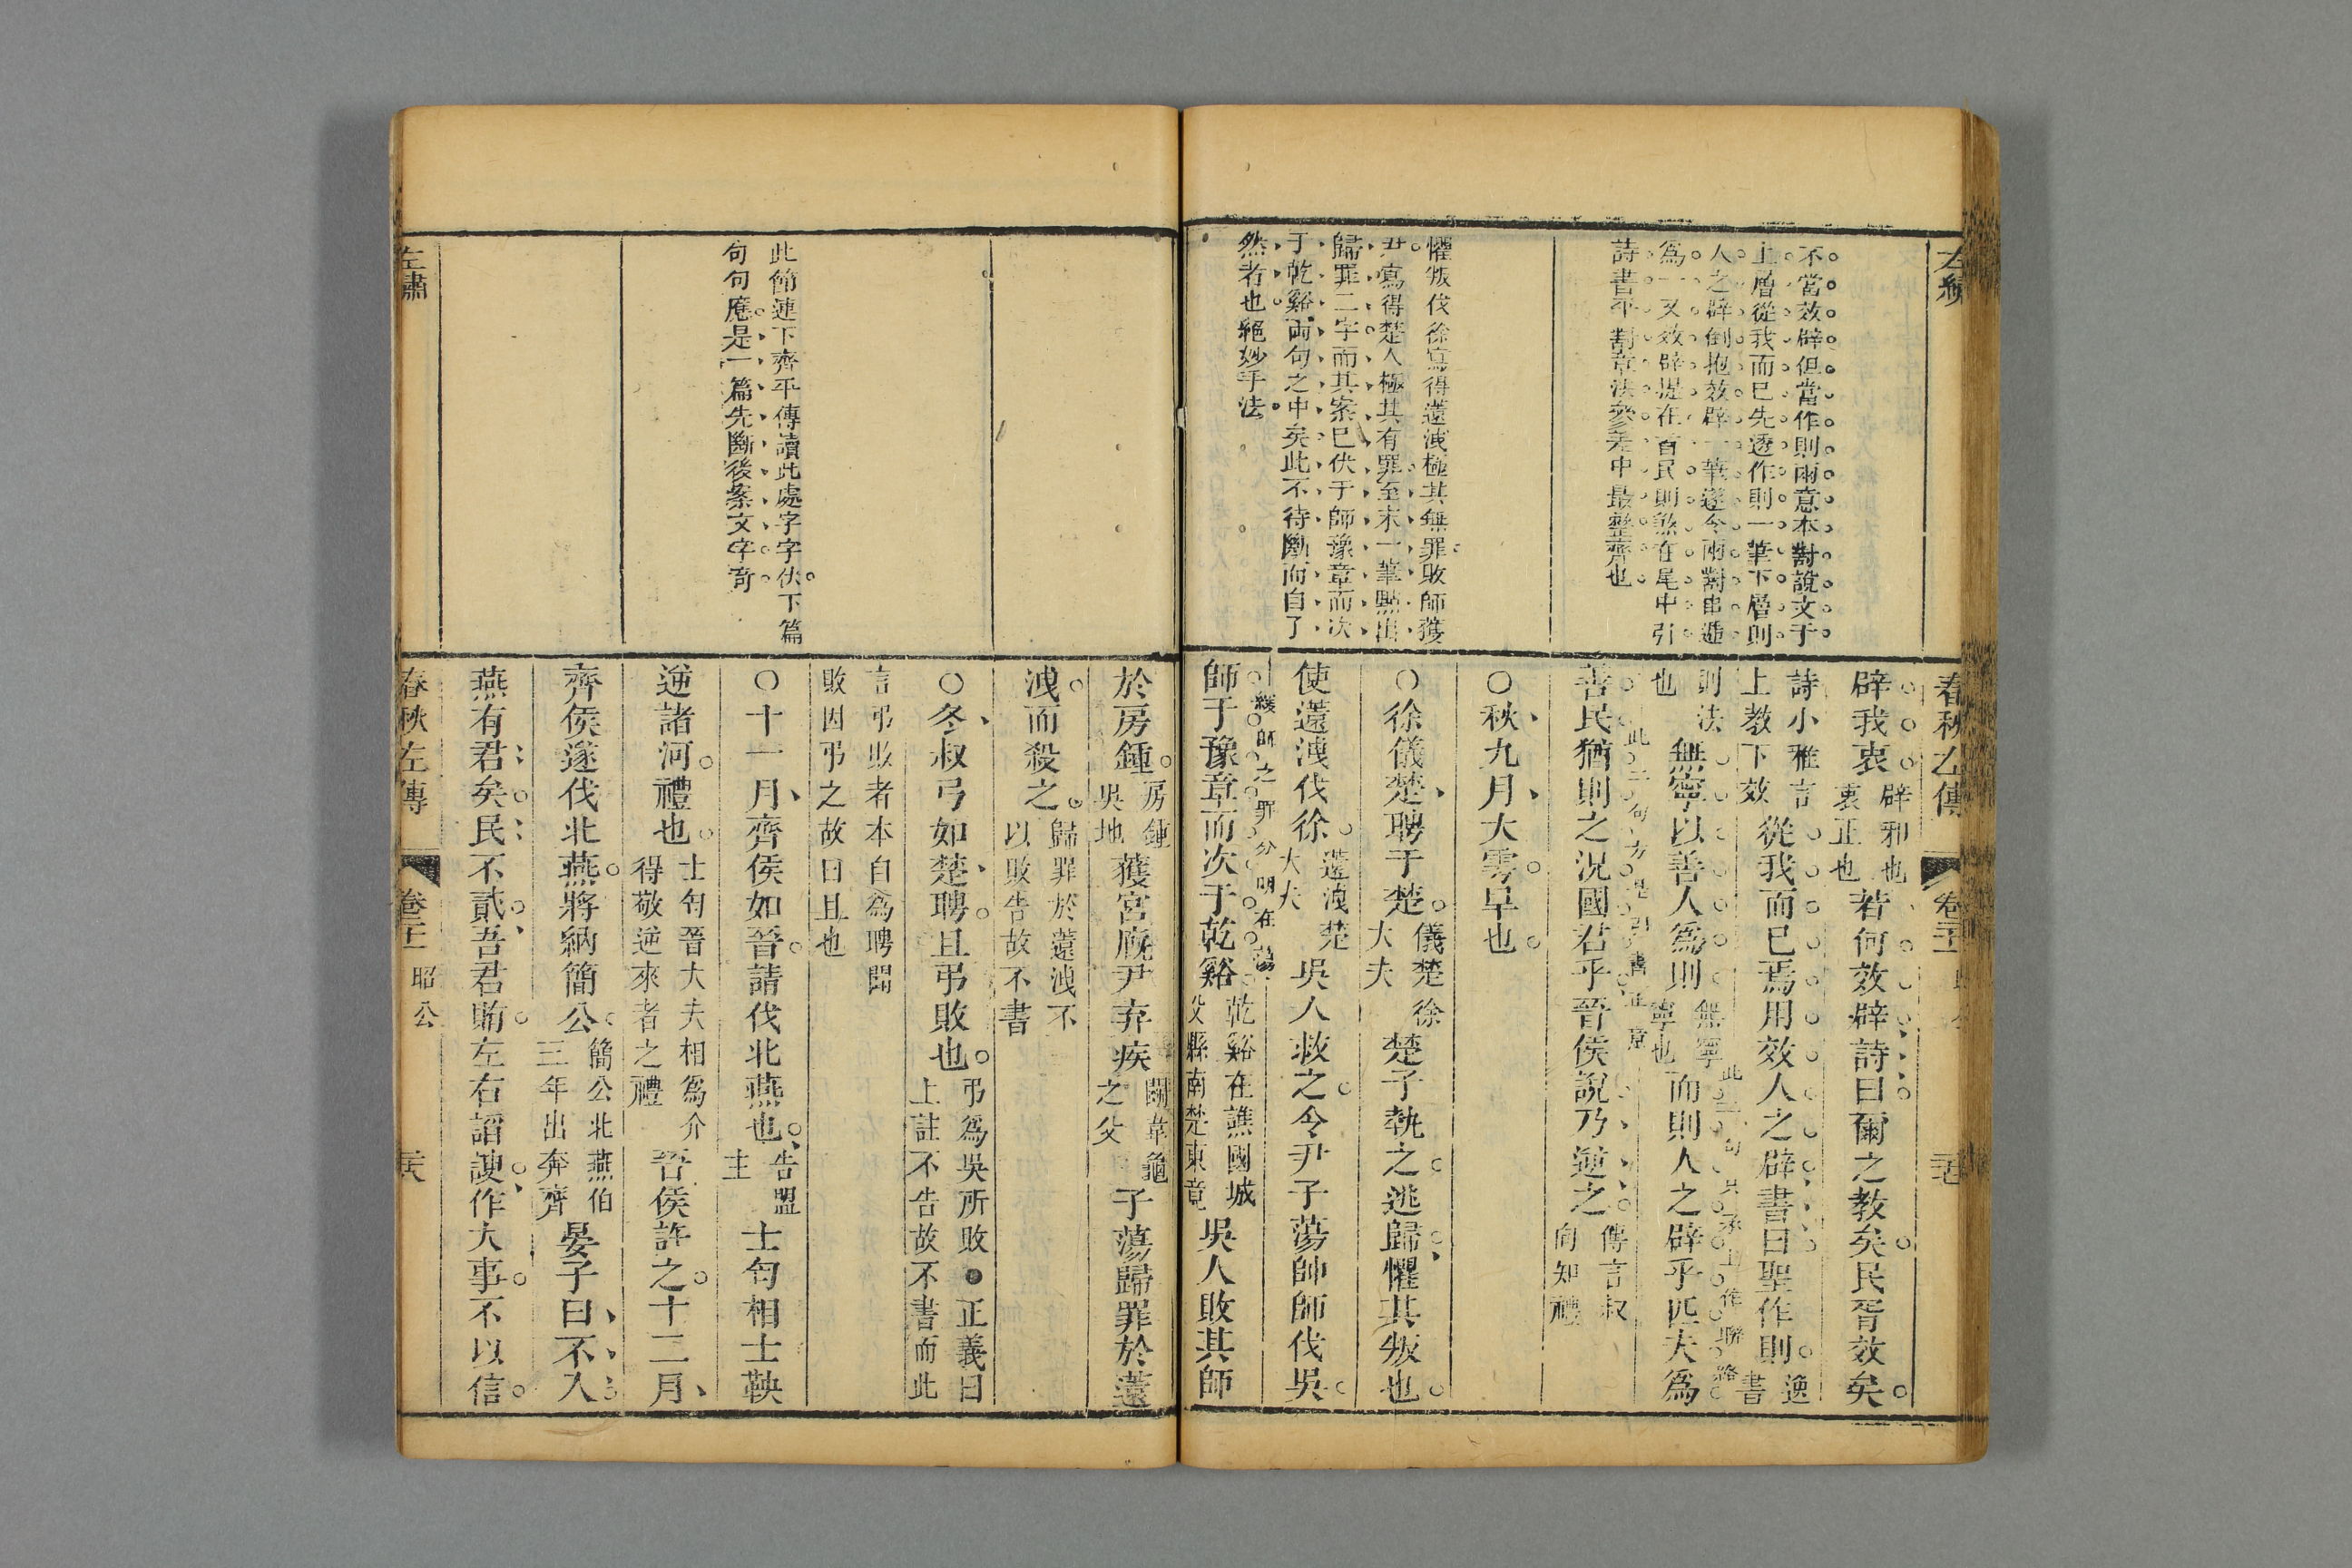 春秋左傳
不當效辟但當作則兩意本對說文于
上層從我而已先透作則一筆下層則
人之辟倒抱效辟一筆遂令兩對串遞
為一又效辟提在首民則煞在尾中引
詩書平對章法參差中最整齊也
懼叛伐徐寫得薳洩極其無罪敗師獲
尹寫得楚人極其有罪至末一筆點出
歸罪二字而其案已伏于師豫章而次
于乾谿兩句之中矣此不待斷而自了
然者也絕妙手法
辟我衷
辟邪也
衷正也
若何效辟詩曰爾之教矣民胥效矣
詩小雅言
上教下效
從我而已焉用效人之辟書曰聖作則
逸
書
則法
也
無寧以善人為則
無寧
寧也
而則人之辟乎匹夫為
善民猶則之況國君乎晉侯說乃逆之
此二句方是引書正意
傳言叔
向知禮
○秋九月大雩旱也
○徐儀楚聘于楚
儀楚徐
大夫
楚子執之逃歸懼其叛也
使薳洩伐徐
薳洩楚
大夫
吳人救之令尹子蕩帥師伐吳
師于豫章而次于乾谿
緩師之罪分明在蕩
乾谿在譙國城
父縣南楚東竟
吳人敗其師
此簡連下齊平傳讀此處字字伏下篇
句句應是一篇先斷後案文字奇
於房鍾
房鍾
吳地
獲宮廄尹弃疾
鬭韋龜
之父
子蕩歸罪於薳
洩而殺之
歸罪於薳洩不
以敗告故不書
○冬叔弓如楚聘且弔敗也
弔為吳所敗●正義曰
上註不告故不書而此
言弔敗者本自為聘聞
敗因弔之故曰且也
○十一月齊侯如晉請伐北燕也
告盟
主
士匄相士鞅
逆諸河禮也
士匄晉大夫相為介
得敬逆來者之禮
晉侯許之十二月
齊侯遂伐北燕將納簡公
簡公北燕伯
三年出奔齊
晏子曰不入
燕有君矣民不貳吾君賄左右諂諛作大事不以信
左繡
春秋左傳
卷二十一
昭公